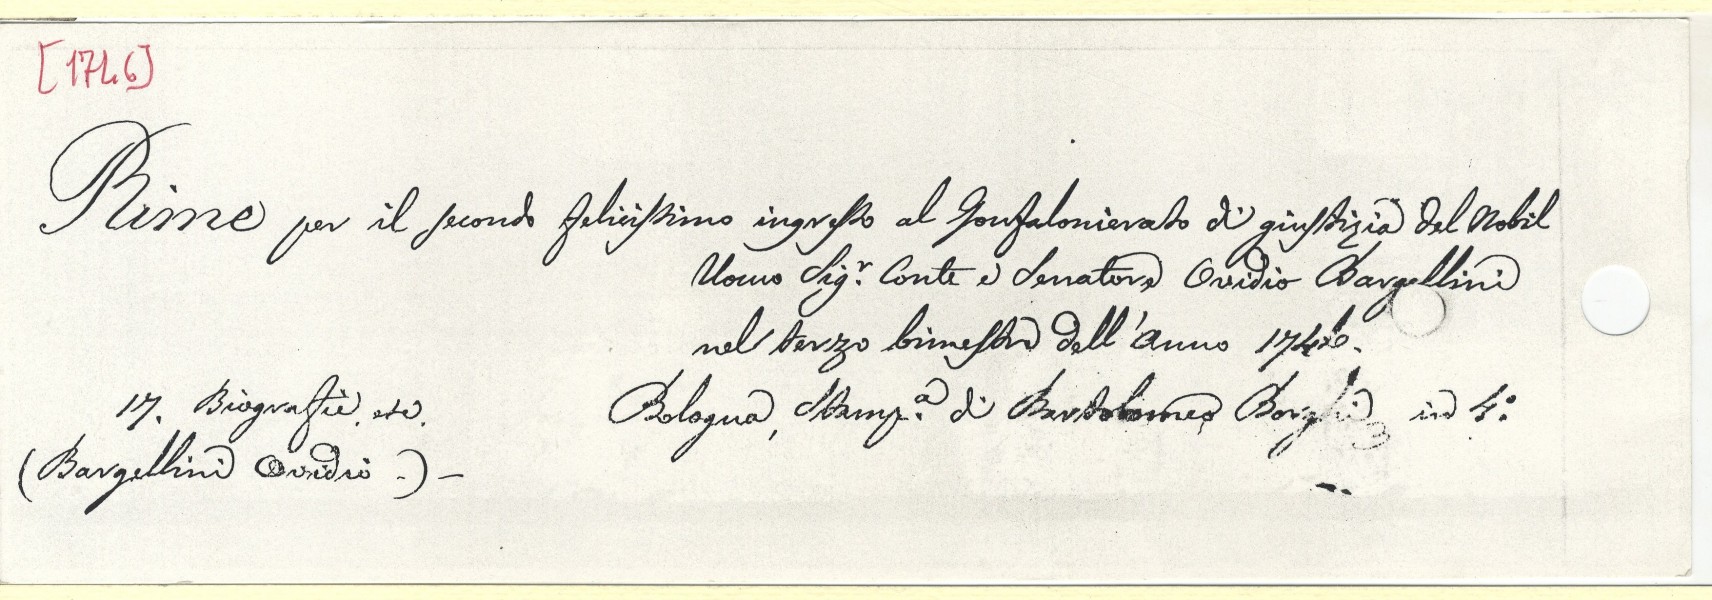 [1746]
Rime per il secondo felicissimo ingresso al Gonfalonierato di giustizia del Nobil
Uomo Sig.r Conte e Senatore Ovidio Bargellini
nel terzo bimestre dell'Anno 1746.
17. Biografie, etc. Bologna, Stamp.a di Bartolomeo Borghi in 4.°
(Bargellini Ovidio -) -